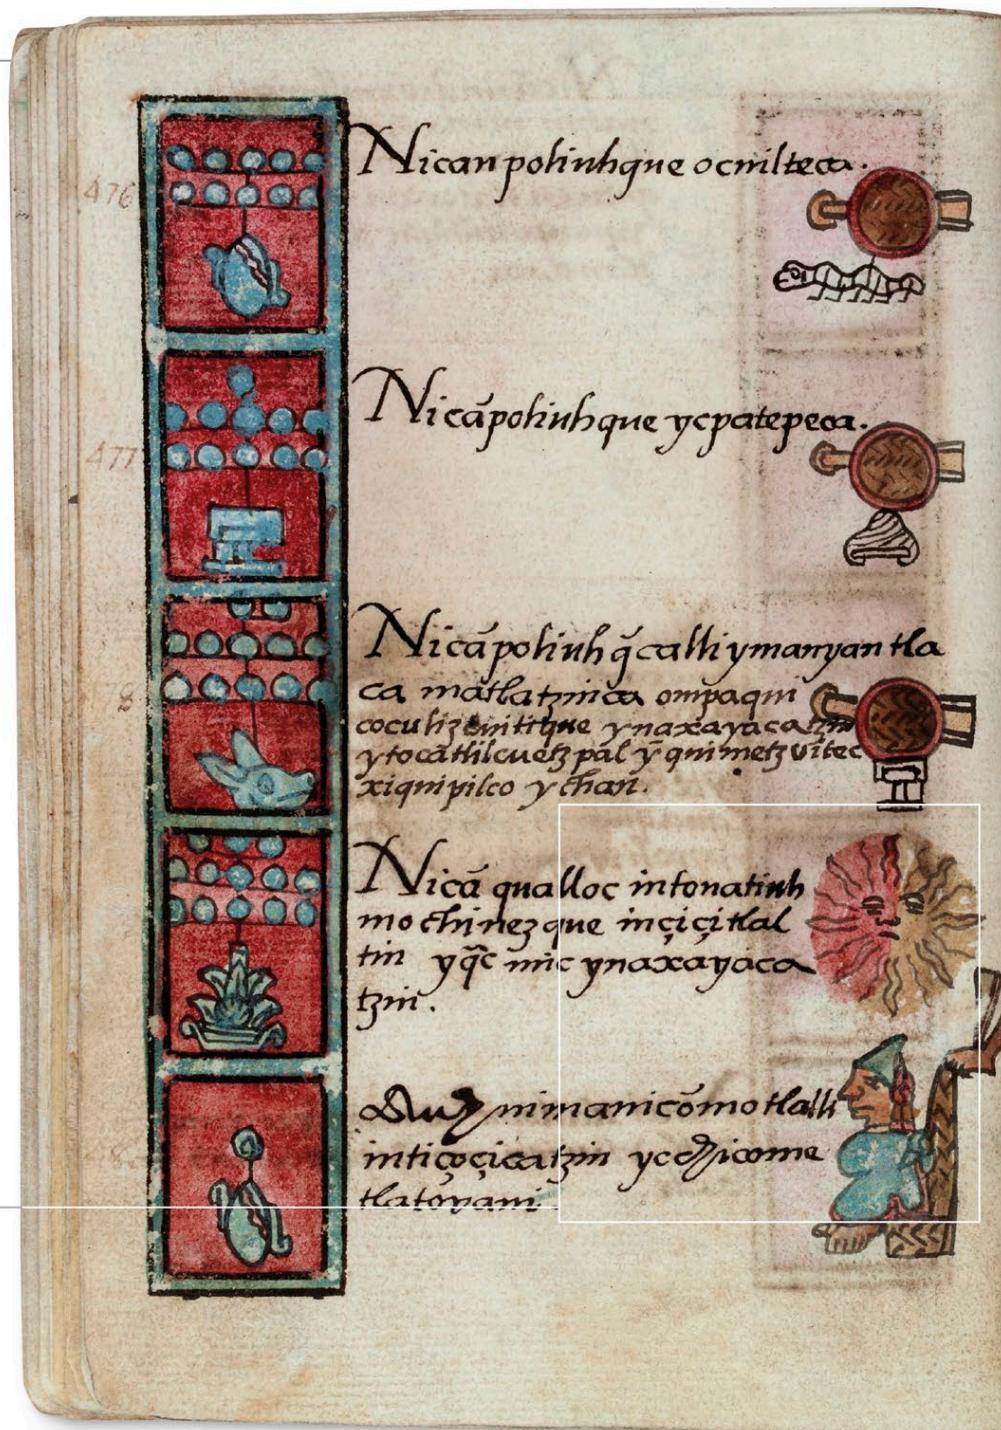 476
Nican poliuhque ocuilteca.
477
Nicā poliuhque ycpatepeca.
Nicā poliuhq̄ calli ymanyan tla
8
ca mātlatzinca ompa qui
coculiz ynaxayaca
ytocā tlilcuetzpal ȳ quimetzvītec
xiquipilco ychan.
Nicā qualloc in tonatiuh
mochi nezque in çiçitlal
tin yq̄c mic ynaxáyáca
tzin.
Auh niman icō motlalli
in tiçoçicatzin yc chicome
tlatoyani